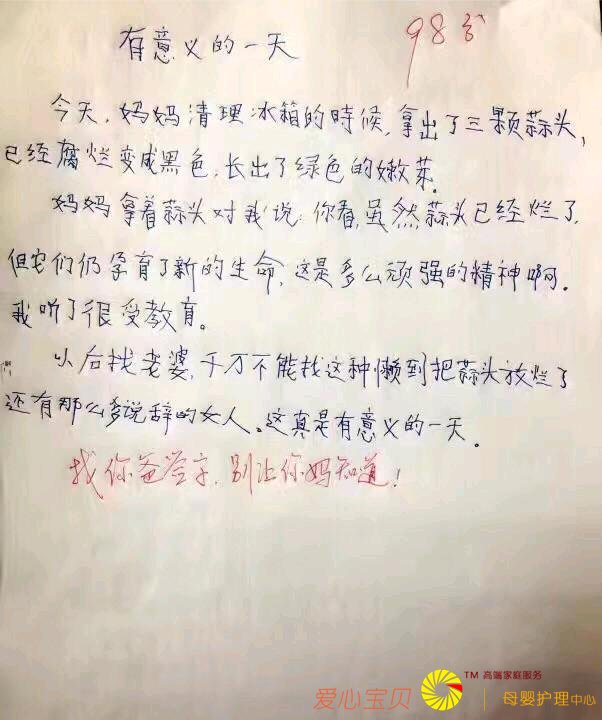 有意义的一天
98分
今天，妈妈清理冰箱的時候，拿出了三颗蒜头，
已经腐烂变成黑色，长出了绿色的嫩芽。
妈妈拿着蒜头对我说：你看，虽然蒜头已经烂了，
但它们仍孕育了新的生命，这是多么顽强的精神啊。
我听了很受教育。
以后找老婆，千万不能找这种懒到把蒜头放烂了
还有那么多说辞的女人。这真是有意义的一天。
找你爸签字，别让你妈知道！
爱心宝贝
TM 高端家庭服务
母婴护理中心